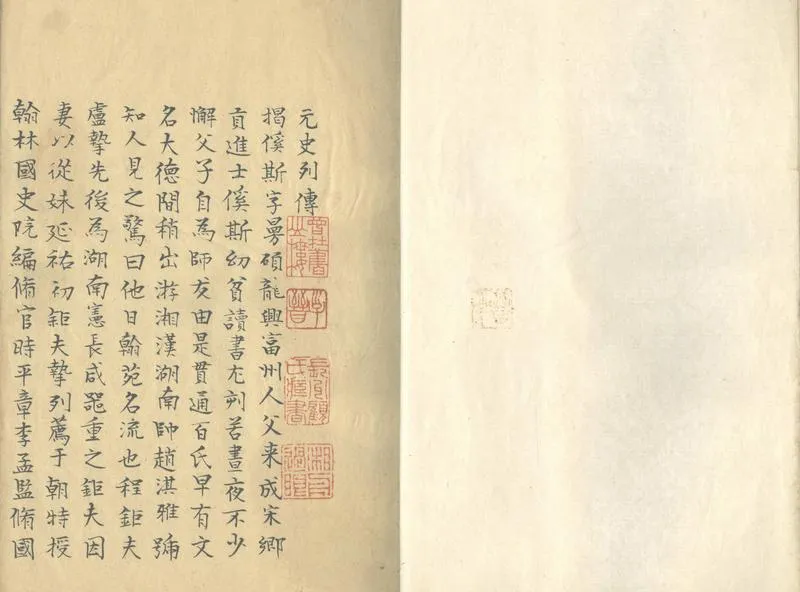 元史列傳
揭傒斯字曼碩龍興富州人父来成宋鄉
貢進士傒斯幼貧讀書尤刻苦晝夜不少
懈父子自為師友由是貫通百氏早有文
名大德間稍出游湘漢湖南帥趙淇雅號
知人見之驚曰他日翰苑名流也程鉅夫
盧摯先後為湖南憲長咸器重之鉅夫因
妻以從妹延祐初鉅夫摯列薦于朝特授
翰林國史院編脩官時平章李孟監脩國